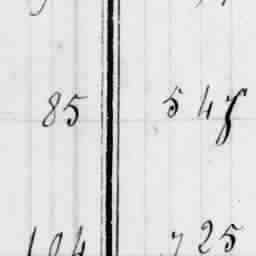 85 547
104 725